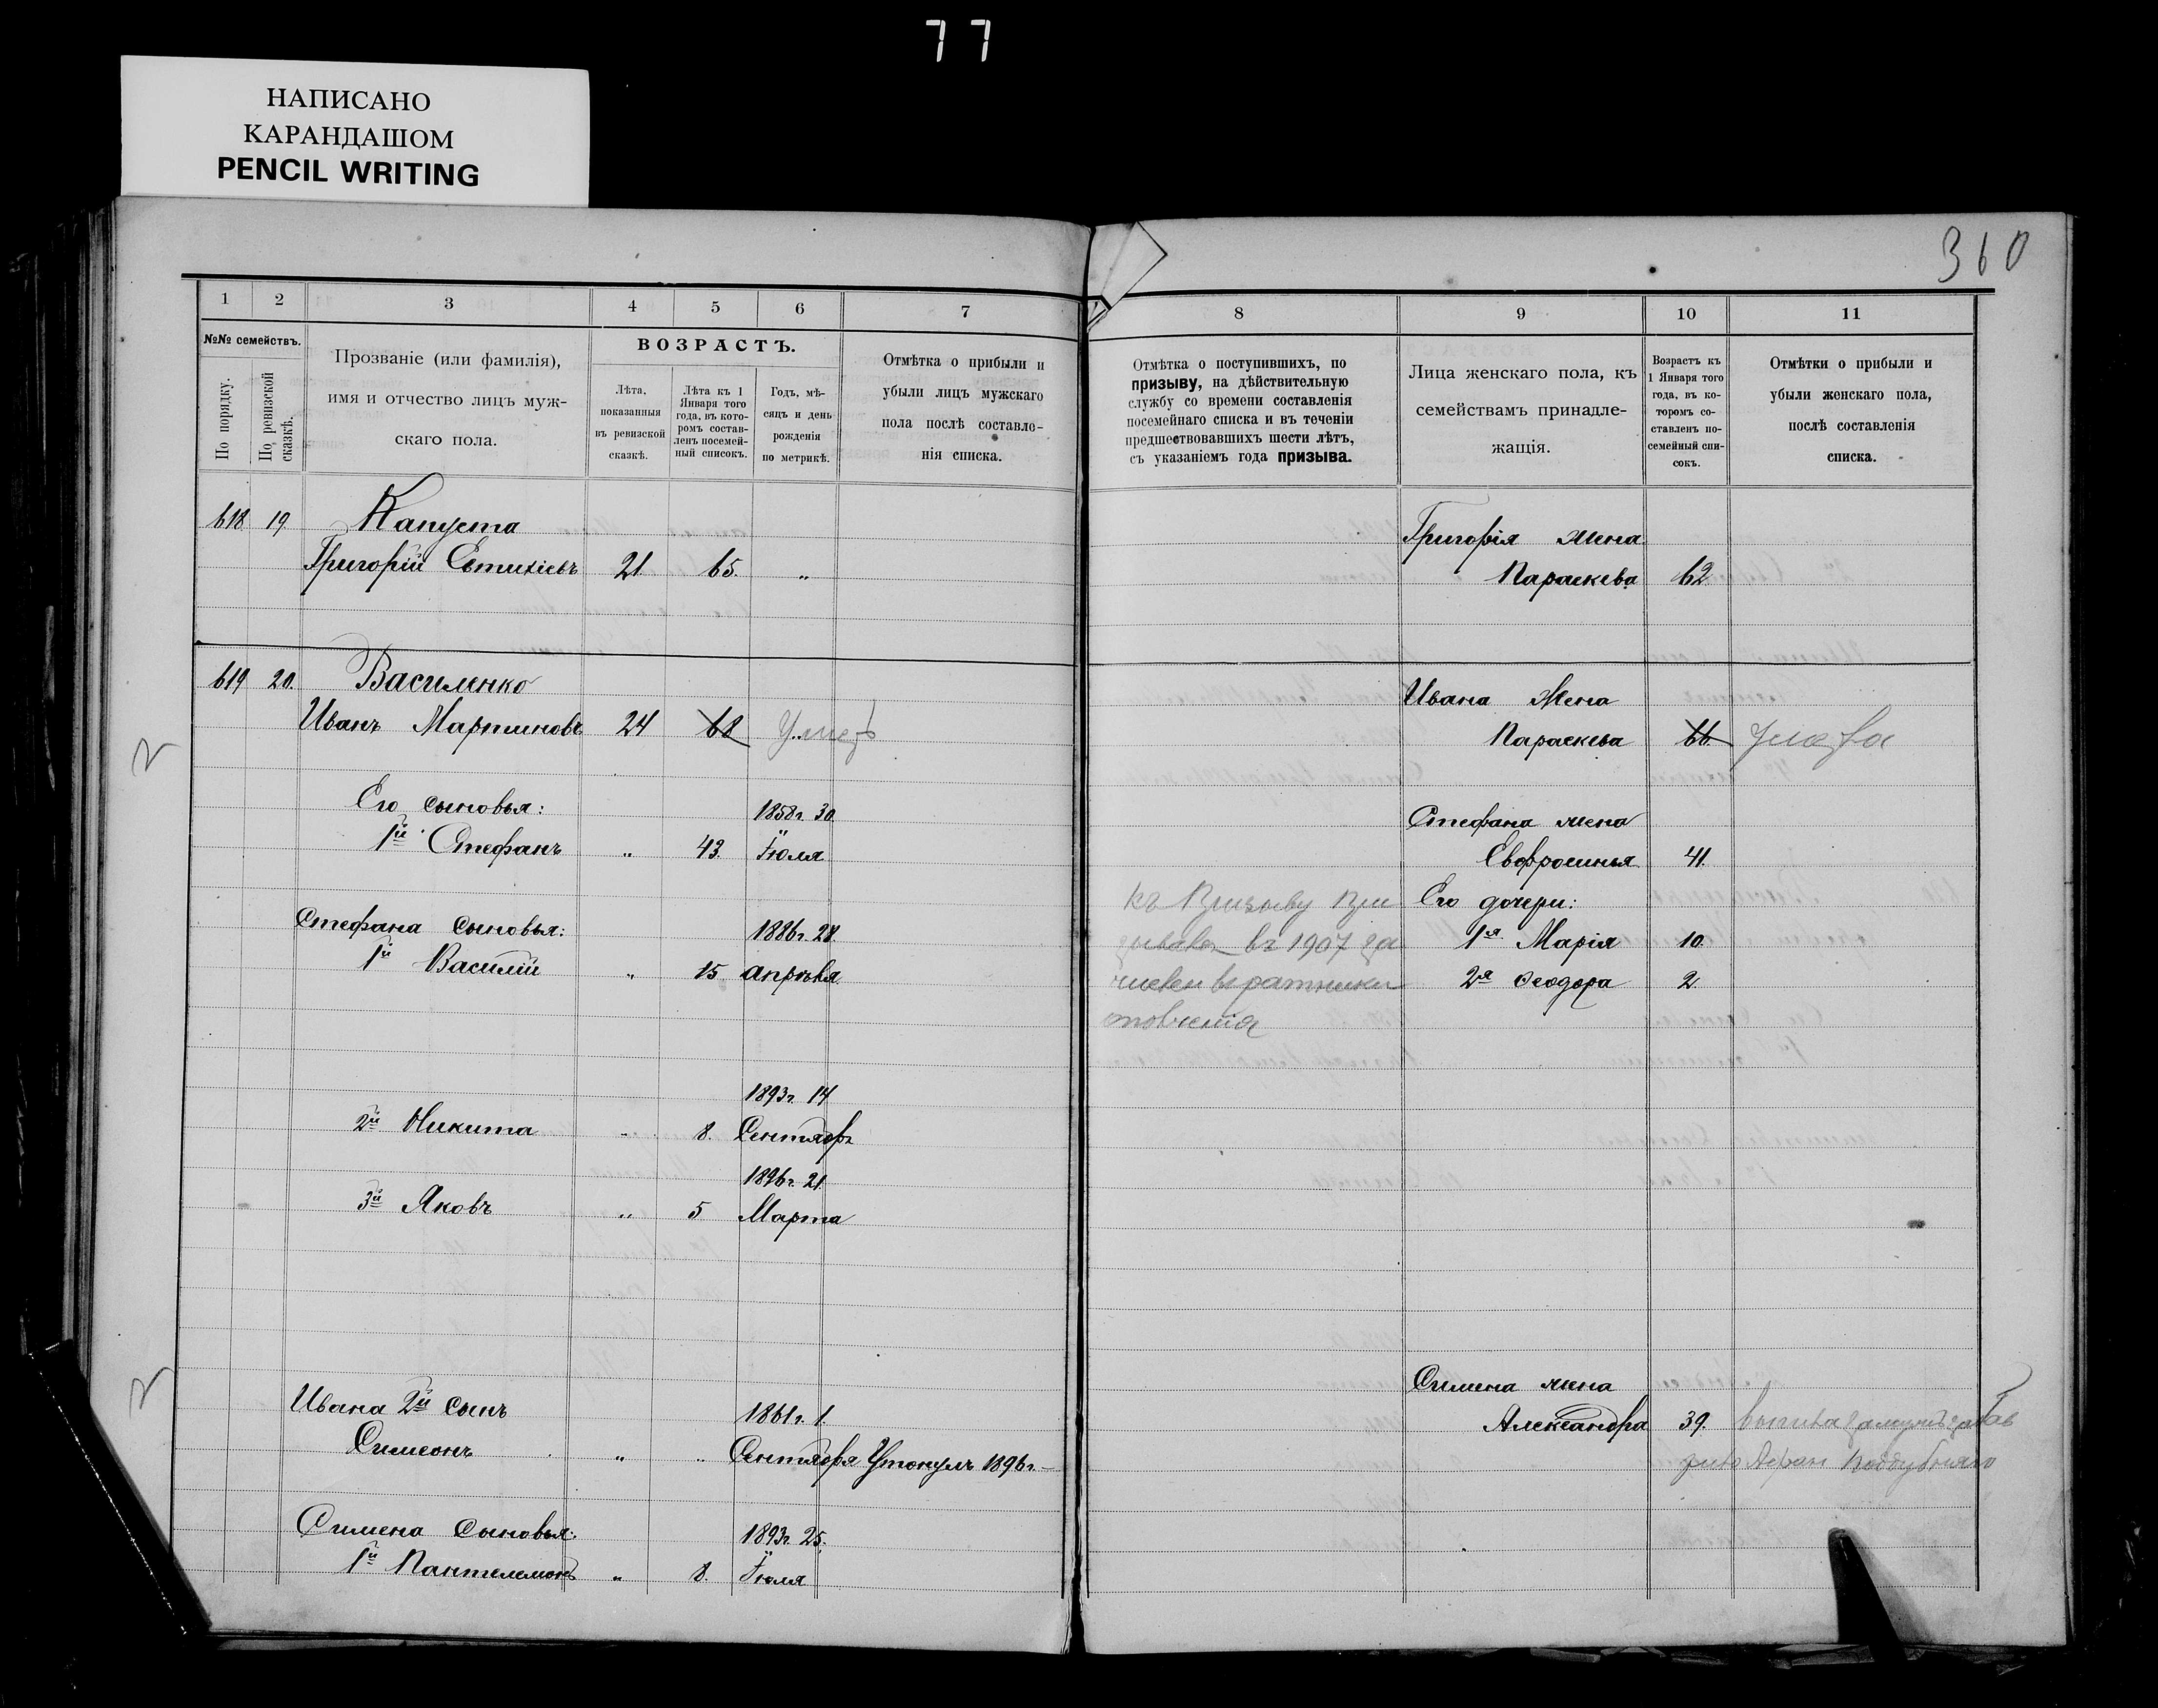 77
НАПИСАНО
КАРАНДАШОМ
PENCIL WRITING
360
1 2 3 4 5 6 7
№№ семействъ.
По порядку.
По ревизской сказкѣ.
Прозваніе (или фамилія),
имя и отчество лицъ муж-
скаго пола.
ВОЗРАСТЪ.
Лѣта,
показанныя
въ ревизской
сказкѣ.
Лѣта къ 1
Января того
года, въ кото-
ромъ состав-
ленъ посемей-
ный списокъ.
Годъ, мѣ-
сяцъ и день
рожденія
по метрикѣ.
Отмѣтка о прибыли и
убыли лицъ мужскаго
пола послѣ составле-
нія списка.
8 9 10 11
Отмѣтка о поступившихъ, по
призыву, на дѣйствительную
службу со времени составленія
посемейнаго списка и въ теченіи
предшествовавшихъ шести лѣтъ,
съ указаніемъ года призыва.
Лица женскаго пола, къ
семействамъ принадле-
жащія.
Возрастъ къ
1 Января того
года, въ ко-
торомъ со-
ставленъ по-
семейный спи-
сокъ.
Отмѣтки о прибыли и
убыли женскаго пола,
послѣ составленія
списка.
618 19 Капуста
Григорій Евтихіевъ 21 65. „
Григорія жена
Параскева 62
619 20. Василенко
Иванъ Мартиновъ 24 68 Умеръ
Ивана Жена
Параскева 66.
Его сыновья: 1858г. 30
1й Стефанъ „ 43. Іюля
Стефана жена
Евфросинья 41.
Стефана сыновья: 1886г. 28
1й Василій „ 15 апрѣля
къ Призыву При
въ 1907 за
численъ въ ратники
ополченія
Его дочери:
1я Марія 10
2я Ѳеодора 2.
1893г. 14
2й Никита „ 8. Сентябр
1896г. 21
3й Яковъ „ 5 Марта
Ивана 2й сынъ 1861г. 1.
Симеонъ „ „ Сентября Утонулъ 1896г.
Симена жена
Александра 39. вышла замужъ за
Поддубняго
Симена сыновья: 1893г. 25.
1й Пантелемонъ „ 8. Іюля